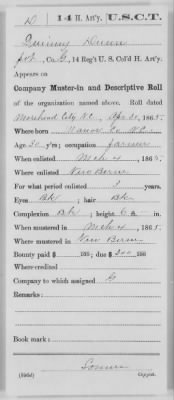 D | 14 H. Art'y. | U.S.C.T.
Quinny Dunn
Pvt, Co. G, 14 Reg't U. S. Col'd H. Art'y.
Appears on
Company Muster-in and Descriptive Roll
of the organization named above. Roll dated
Morehead City N.C., Apr. 30, 1865.
Where born N.C.
Age 30 y'rs; occupation farmer
When enlisted Mch 4, 1865.
Where enlisted New Bern
For what period enlisted 3 years.
Eyes Bk; hair Bk
Complexion Bk; height 6 ft. in.
When mustered in Mch 4, 1865.
Where mustered in New Bern
Bounty paid $ 100; due $ 100
Where credited
Company to which assigned G
Remarks:
Book mark:
(356d) Copyist.